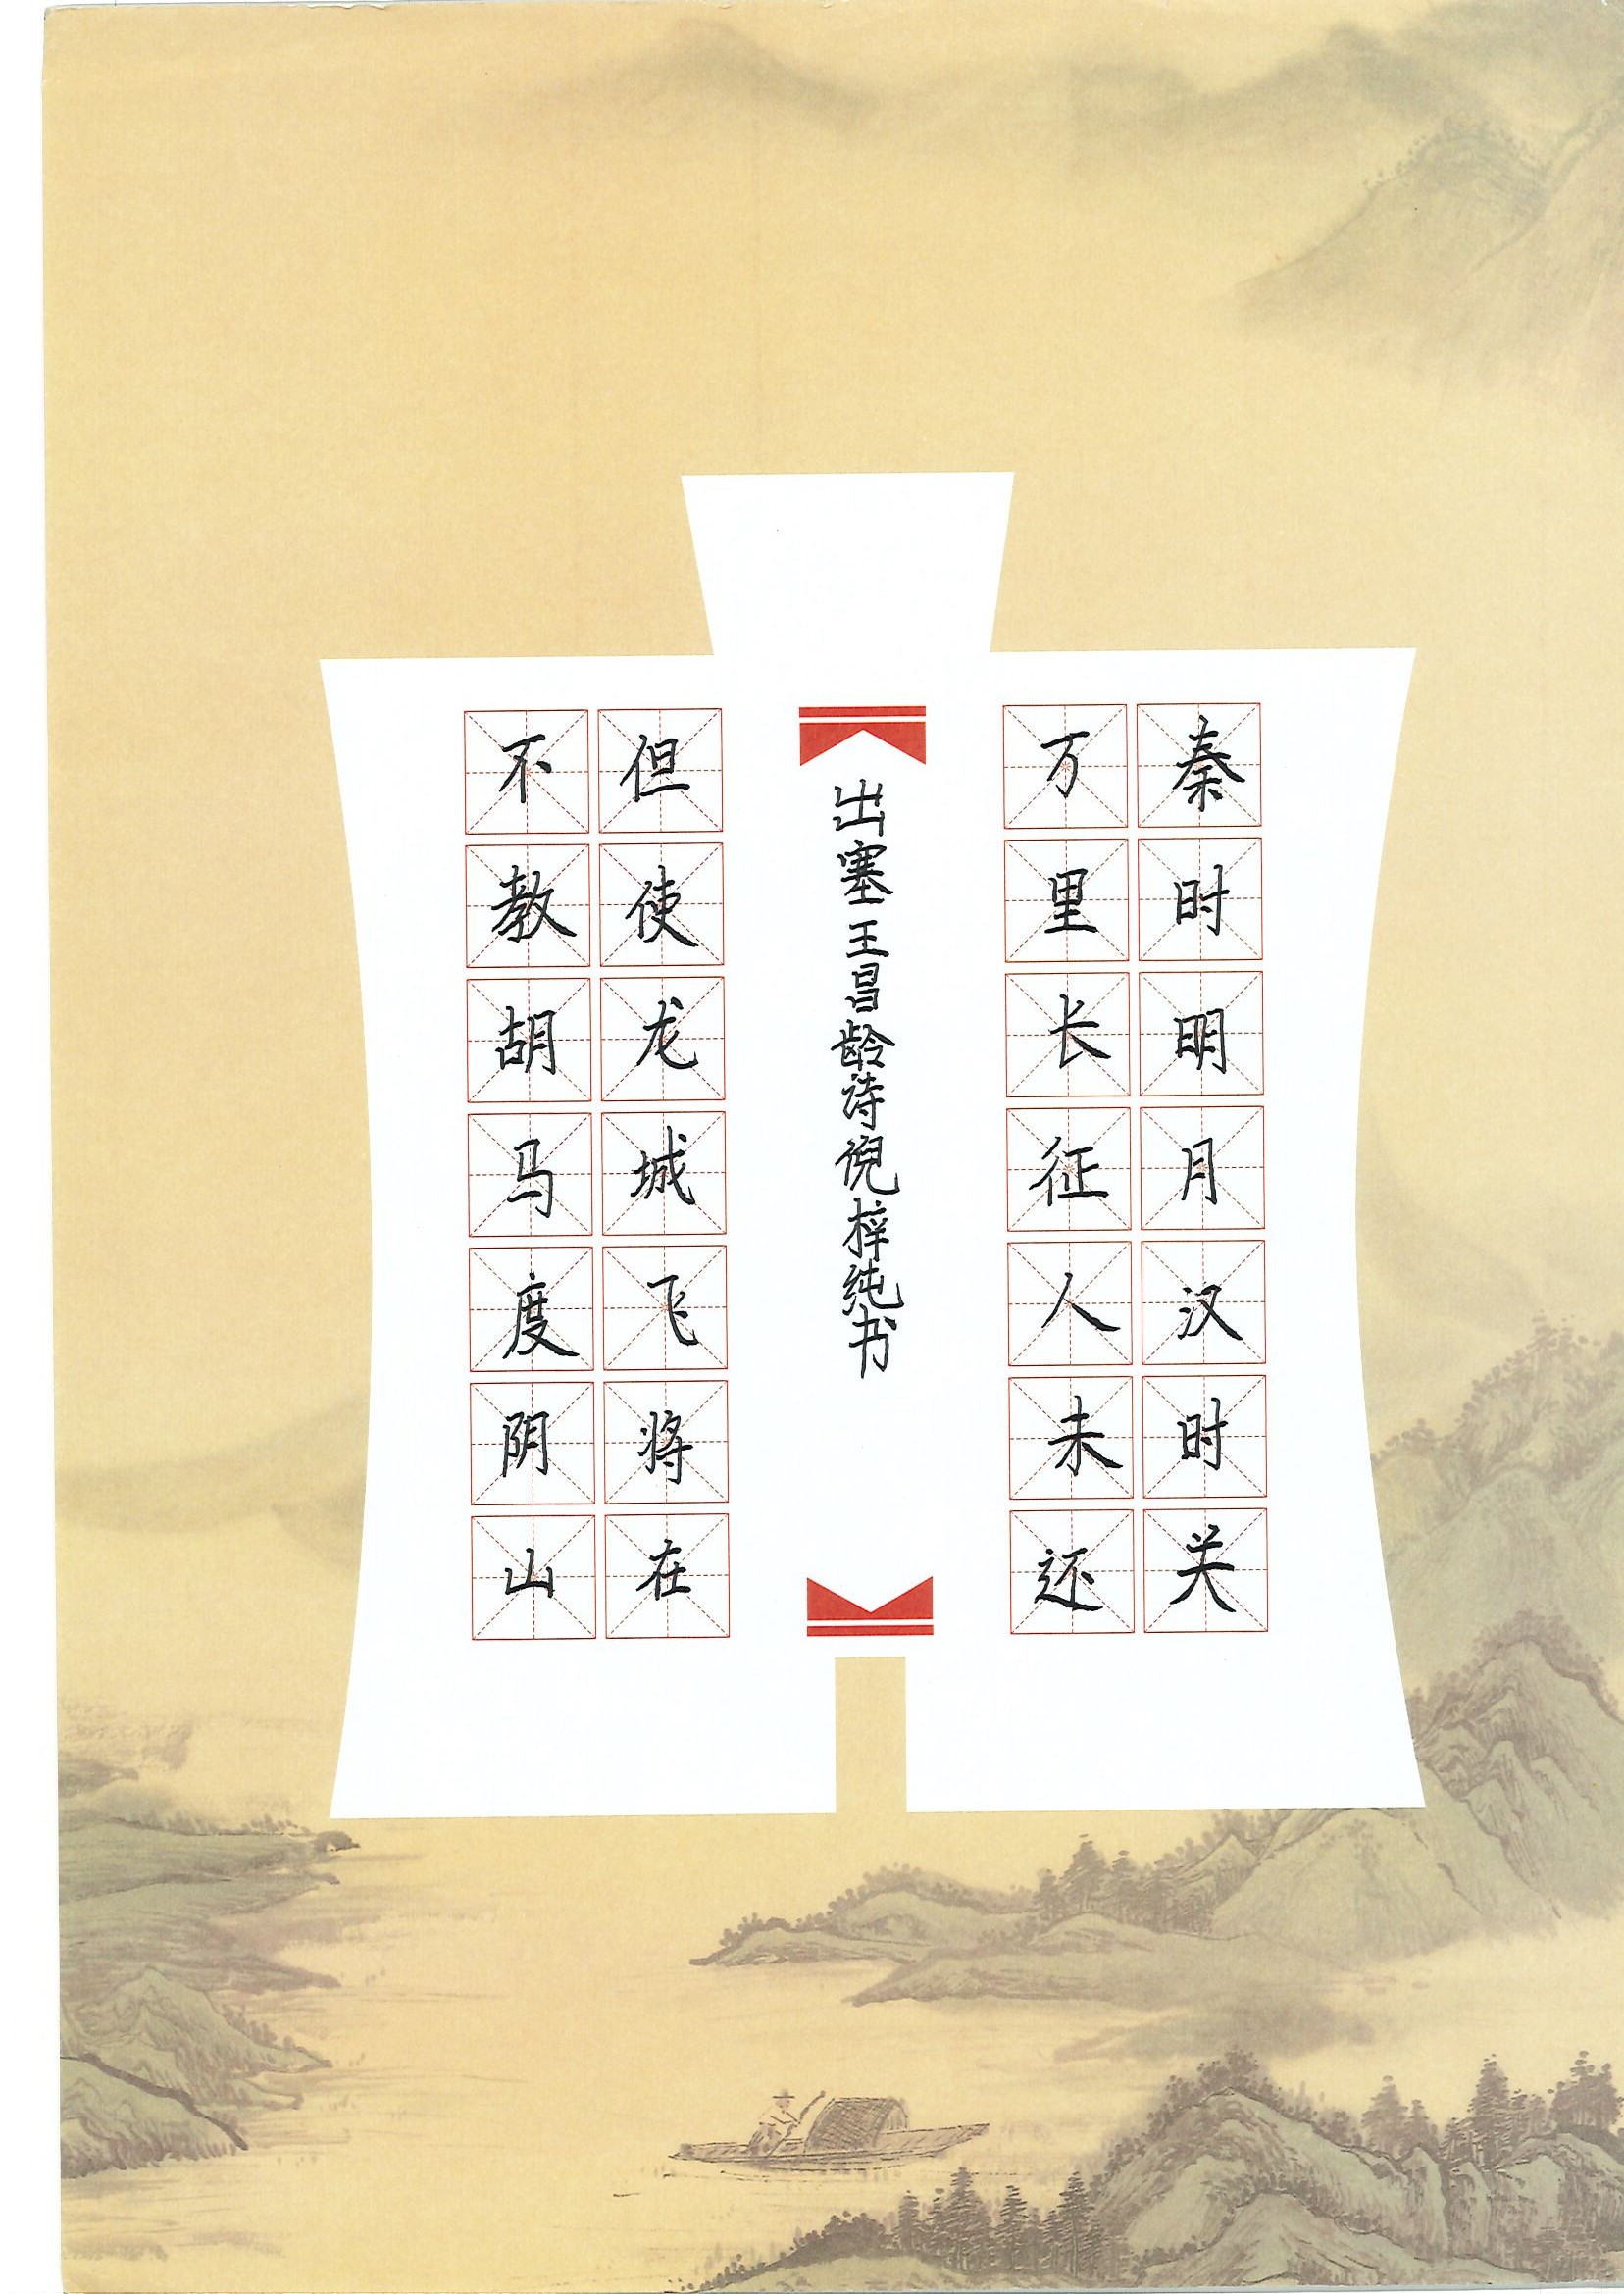 秦时明月汉时关
万里长征人未还
出塞王昌龄诗倪梓纯书
但使龙城飞将在
不教胡马度阴山